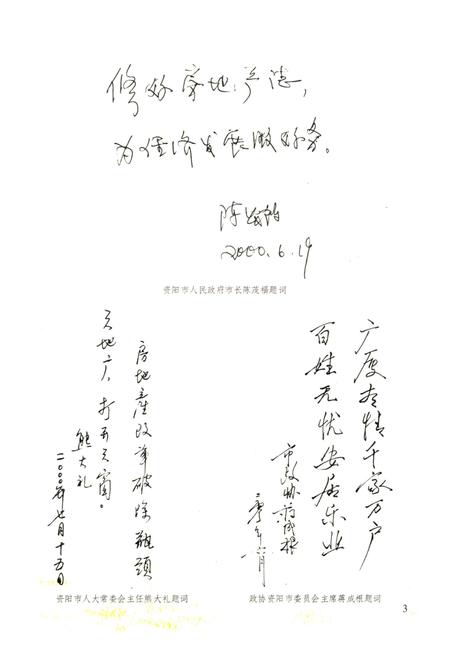 修好房地产志,
为经济发展做好服务。
陈茂福
2000.6.19
资阳市人民政府市长陈茂福题词
广厦有情千家万户
百姓无忧安居乐业
市政协蒋成根
房地產改革破除瓶頭
天地广,打开天窗。
熊大礼
二〇〇〇年七月十五日
资阳市人大常委会主任熊大礼题词
政协资阳市委员会主席蒋成根题词
3